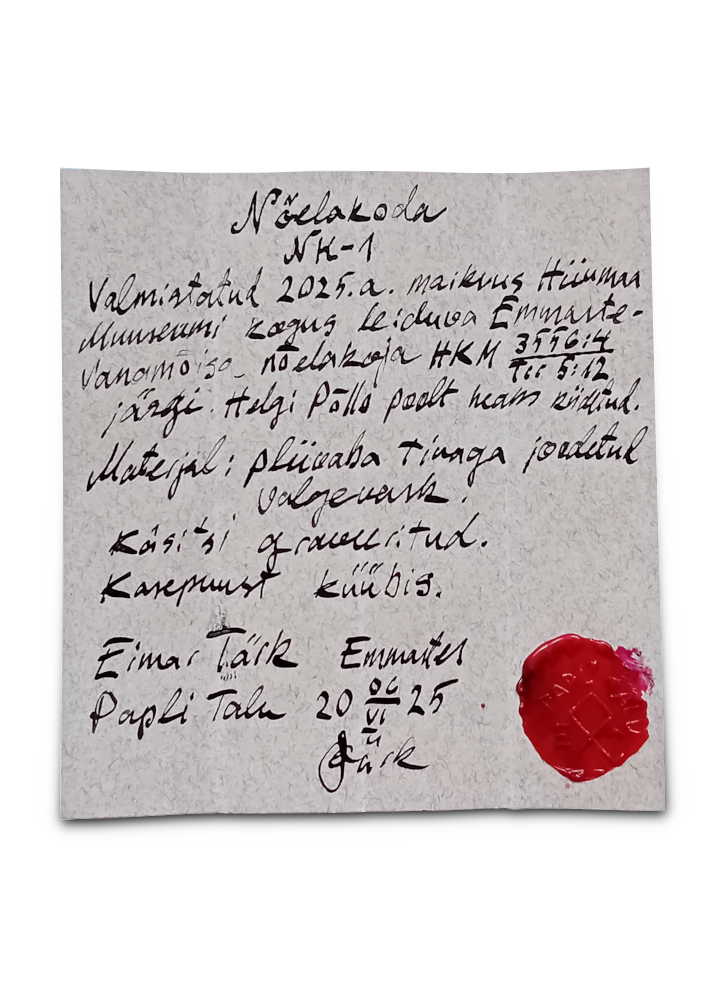 Nõelakoda
NK-1
Valmistatud 2025.a. maikuus Hiiumaa
Muuseumi kogus leiduva Emmaste-
Vanamõisa nõelakoja HKM 3556:4
Trr 5:12
järgi. Helgi Põllo poolt heaks kiidetud.
Materjal: pliivaba tinaga joodetud
valgevask.
Käsitsi graveeritud.
Kasepuust küübis.
Eimar Tärk Emmastes
Papli Talu 20 06/VI 25
Tärk